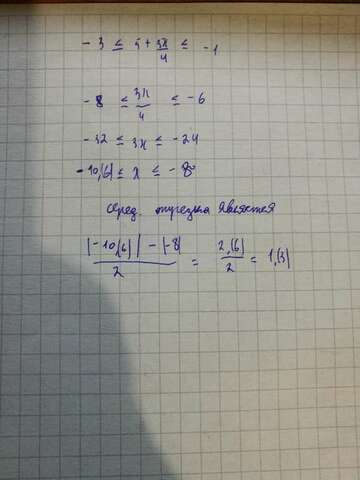 -3 ≤ 5 + 3x/4 ≤ -1
-8 ≤ 3x/4 ≤ -6
-32 ≤ 3x ≤ -24
-10,(6) ≤ x ≤ -8
серед. отрезка является
|-10,(6)| - |-8| / 2 = 2,(6) / 2 = 1,(3)